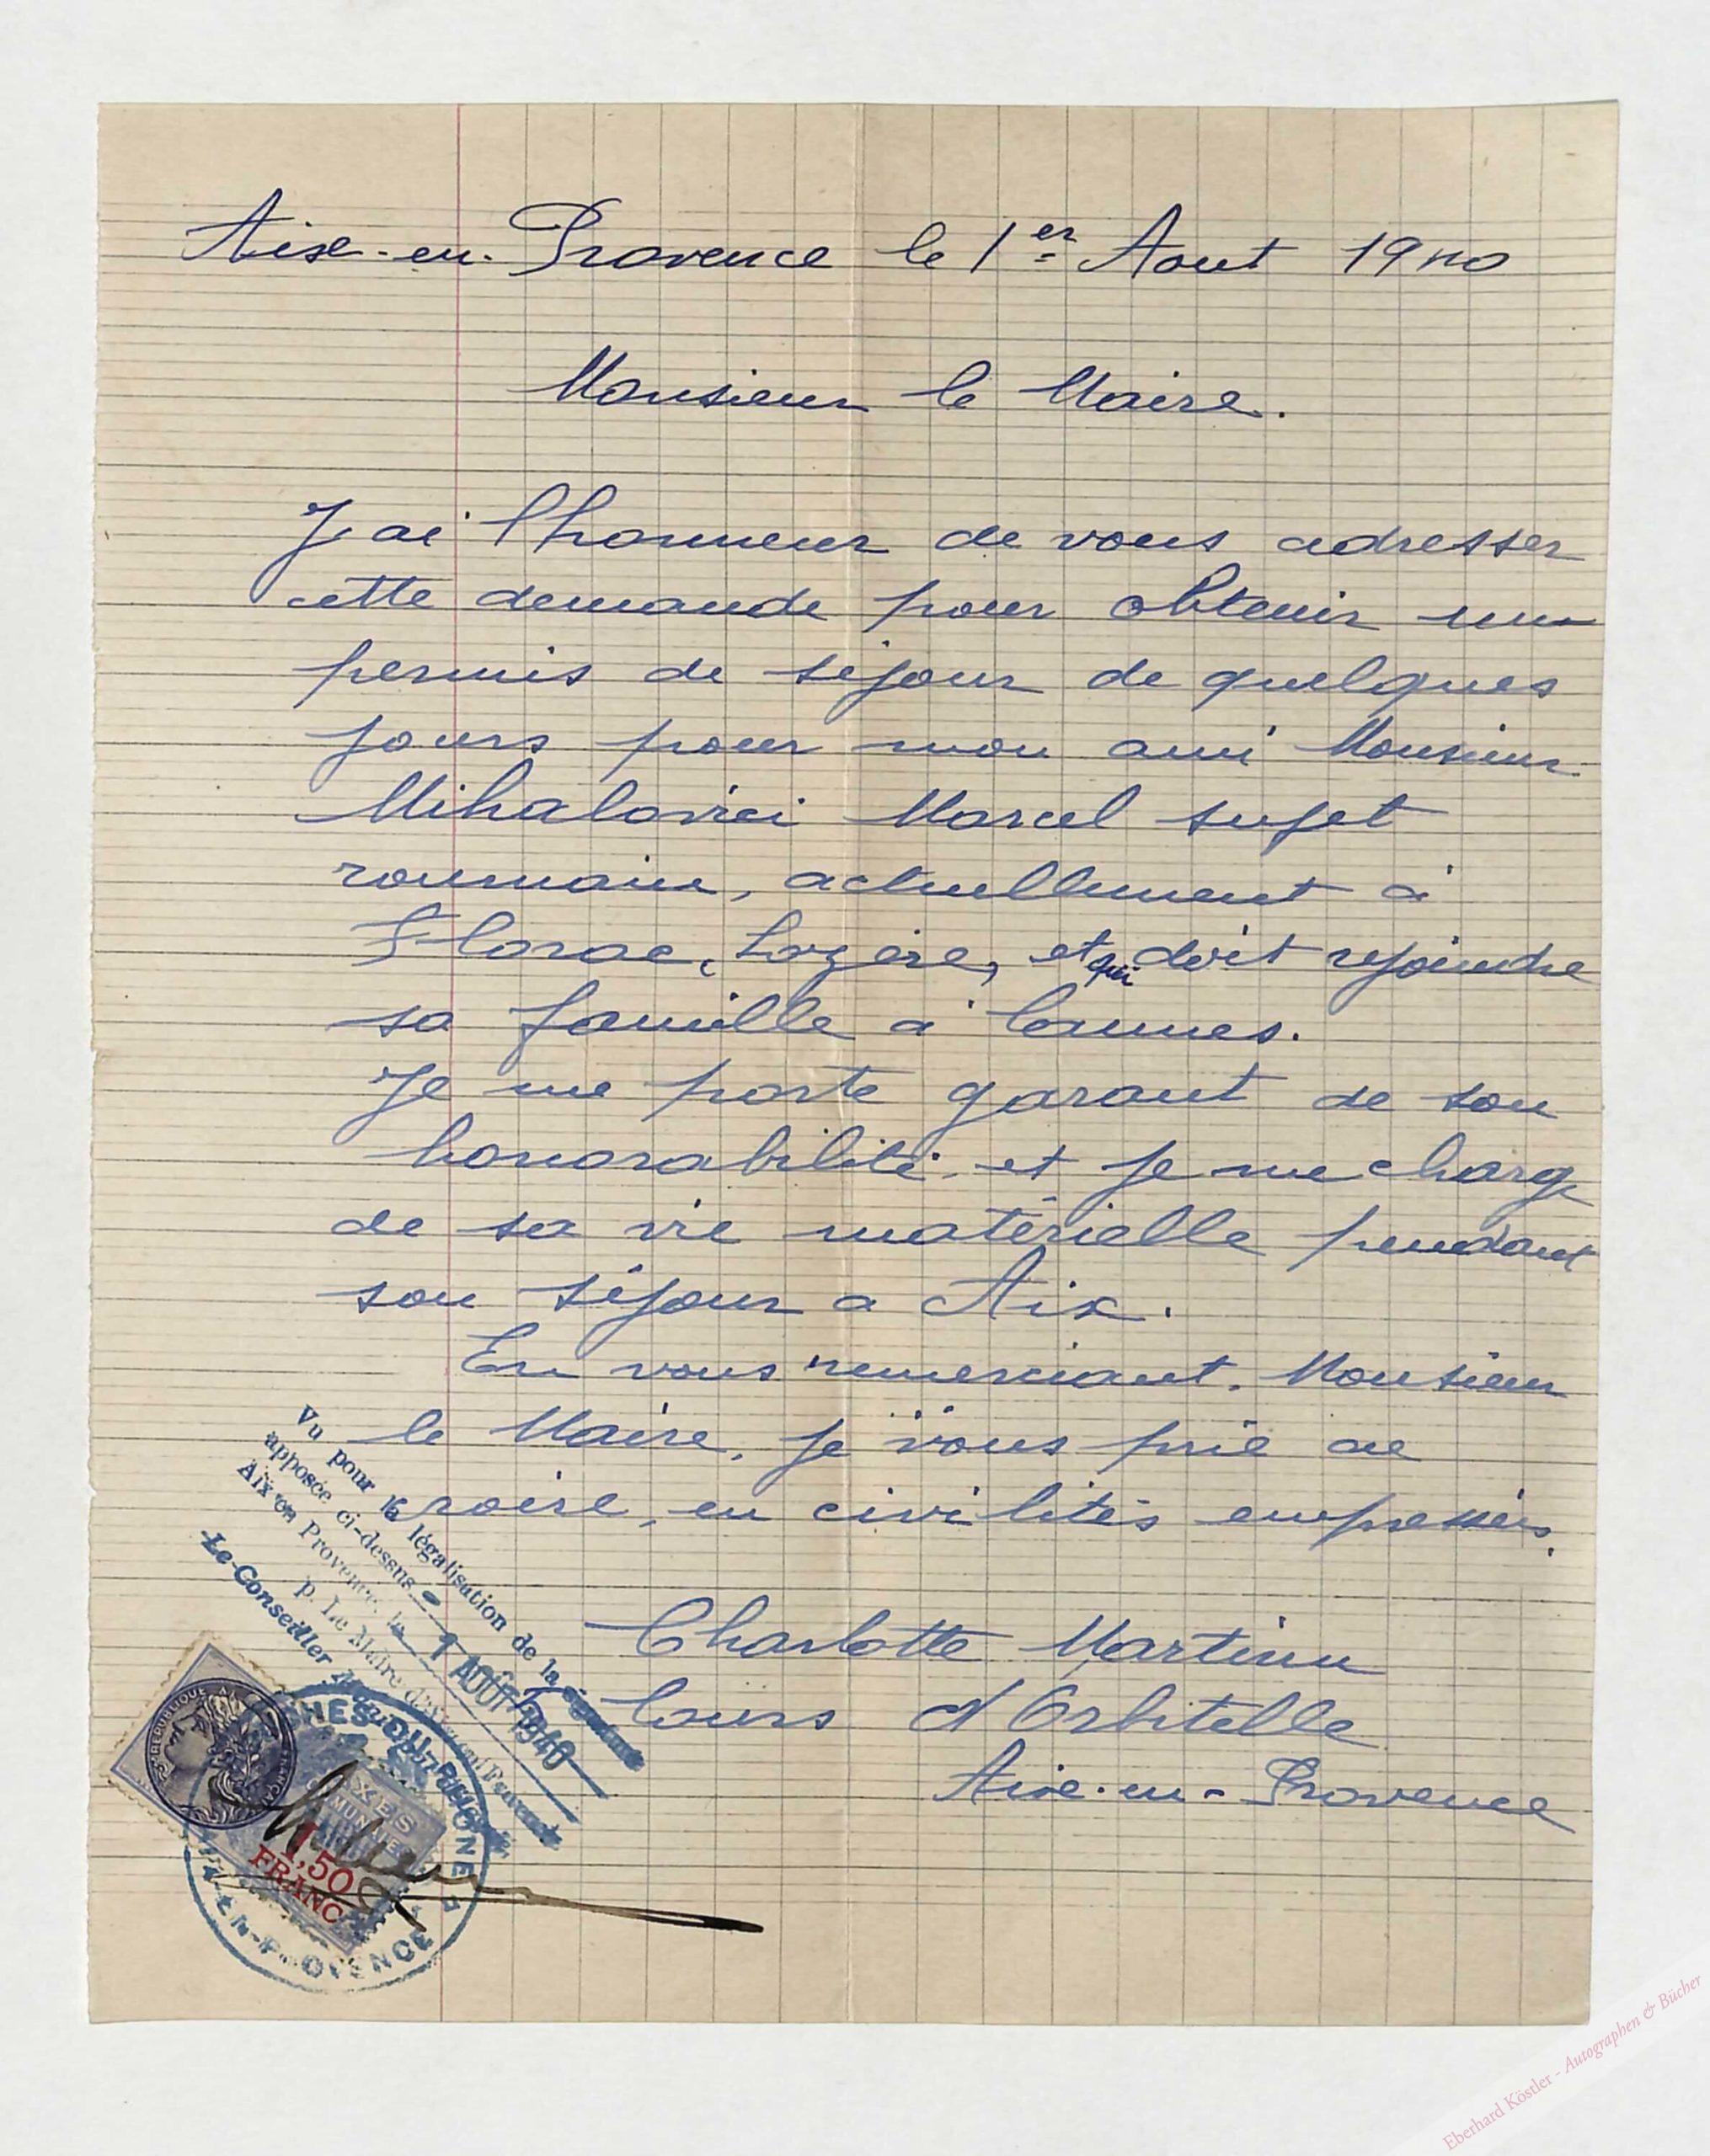 Aix-en-Provence le 1er Aout 1940
Monsieur le Maire.
J'ai l'honneur de vous adresser
cette demande pour obtenir un
permis de séjour de quelques
jours pour mon ami Monsieur
Mihalovici Marcel sujet
roumain, actuellement à
Florac, Lozère, et qui doit rejoindre
sa famille à Cannes.
Je me porte garant de son
honorabilité, et je me charge
de sa vie matérielle pendant
son séjour a Aix.
En vous remerciant, Monsieur
le Maire, je vous prie de
croire, en civilités empressées.
Charlotte Martinu
Cours d'Orbitelle
Aix-en-Provence
Vu pour la légalisation de la
apposée ci-dessus
Aix en Provence, le 1 AOUT 1940
p. Le Maire d'Aix-en-Provence
Le Conseiller
RÉPUBLIQUE FRANÇAISE
TAXES
COMMUNALES
1,50
FRANC
BOUCHES-DU-RHONE
AIX-EN-PROVENCE
Eberhard Köstler - Autographen & Bücher